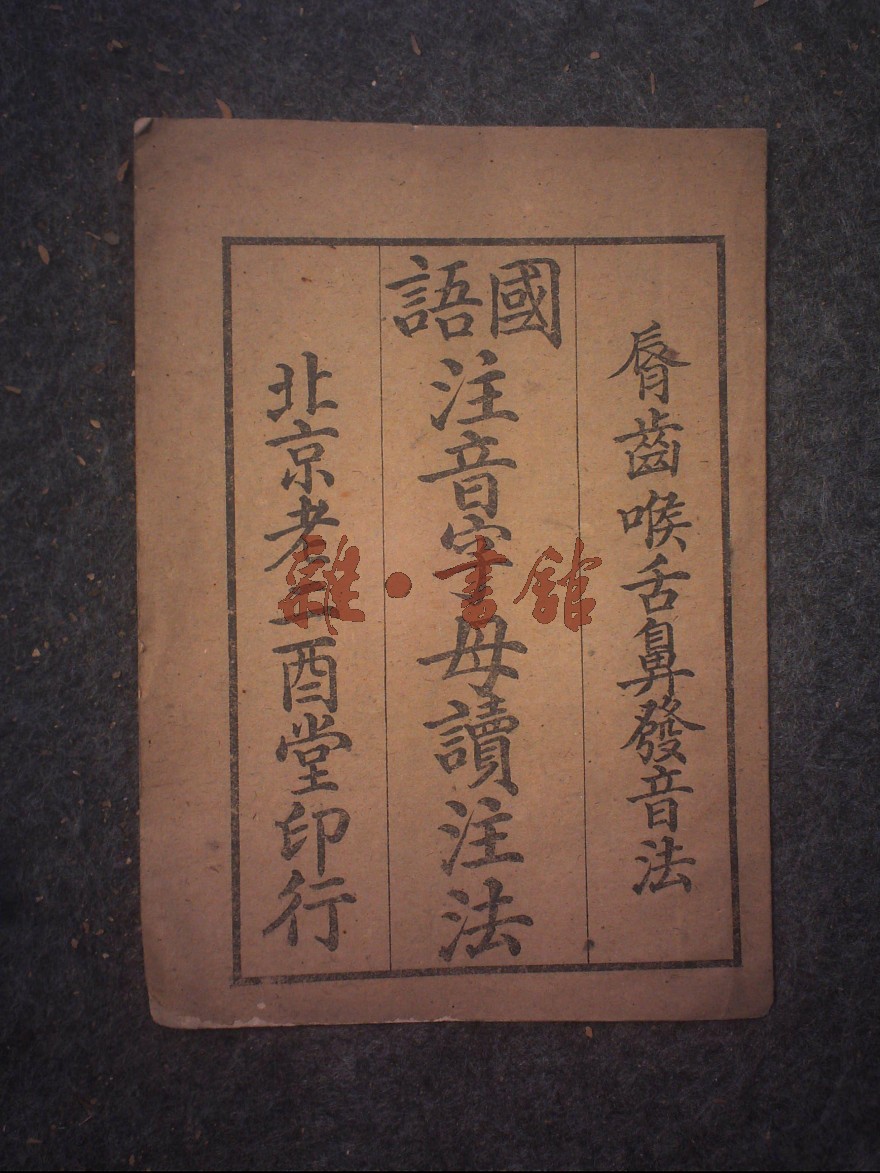 脣齒喉舌鼻發音法
國語
注音字母讀注法
北京老二酉堂印行
雜·書館